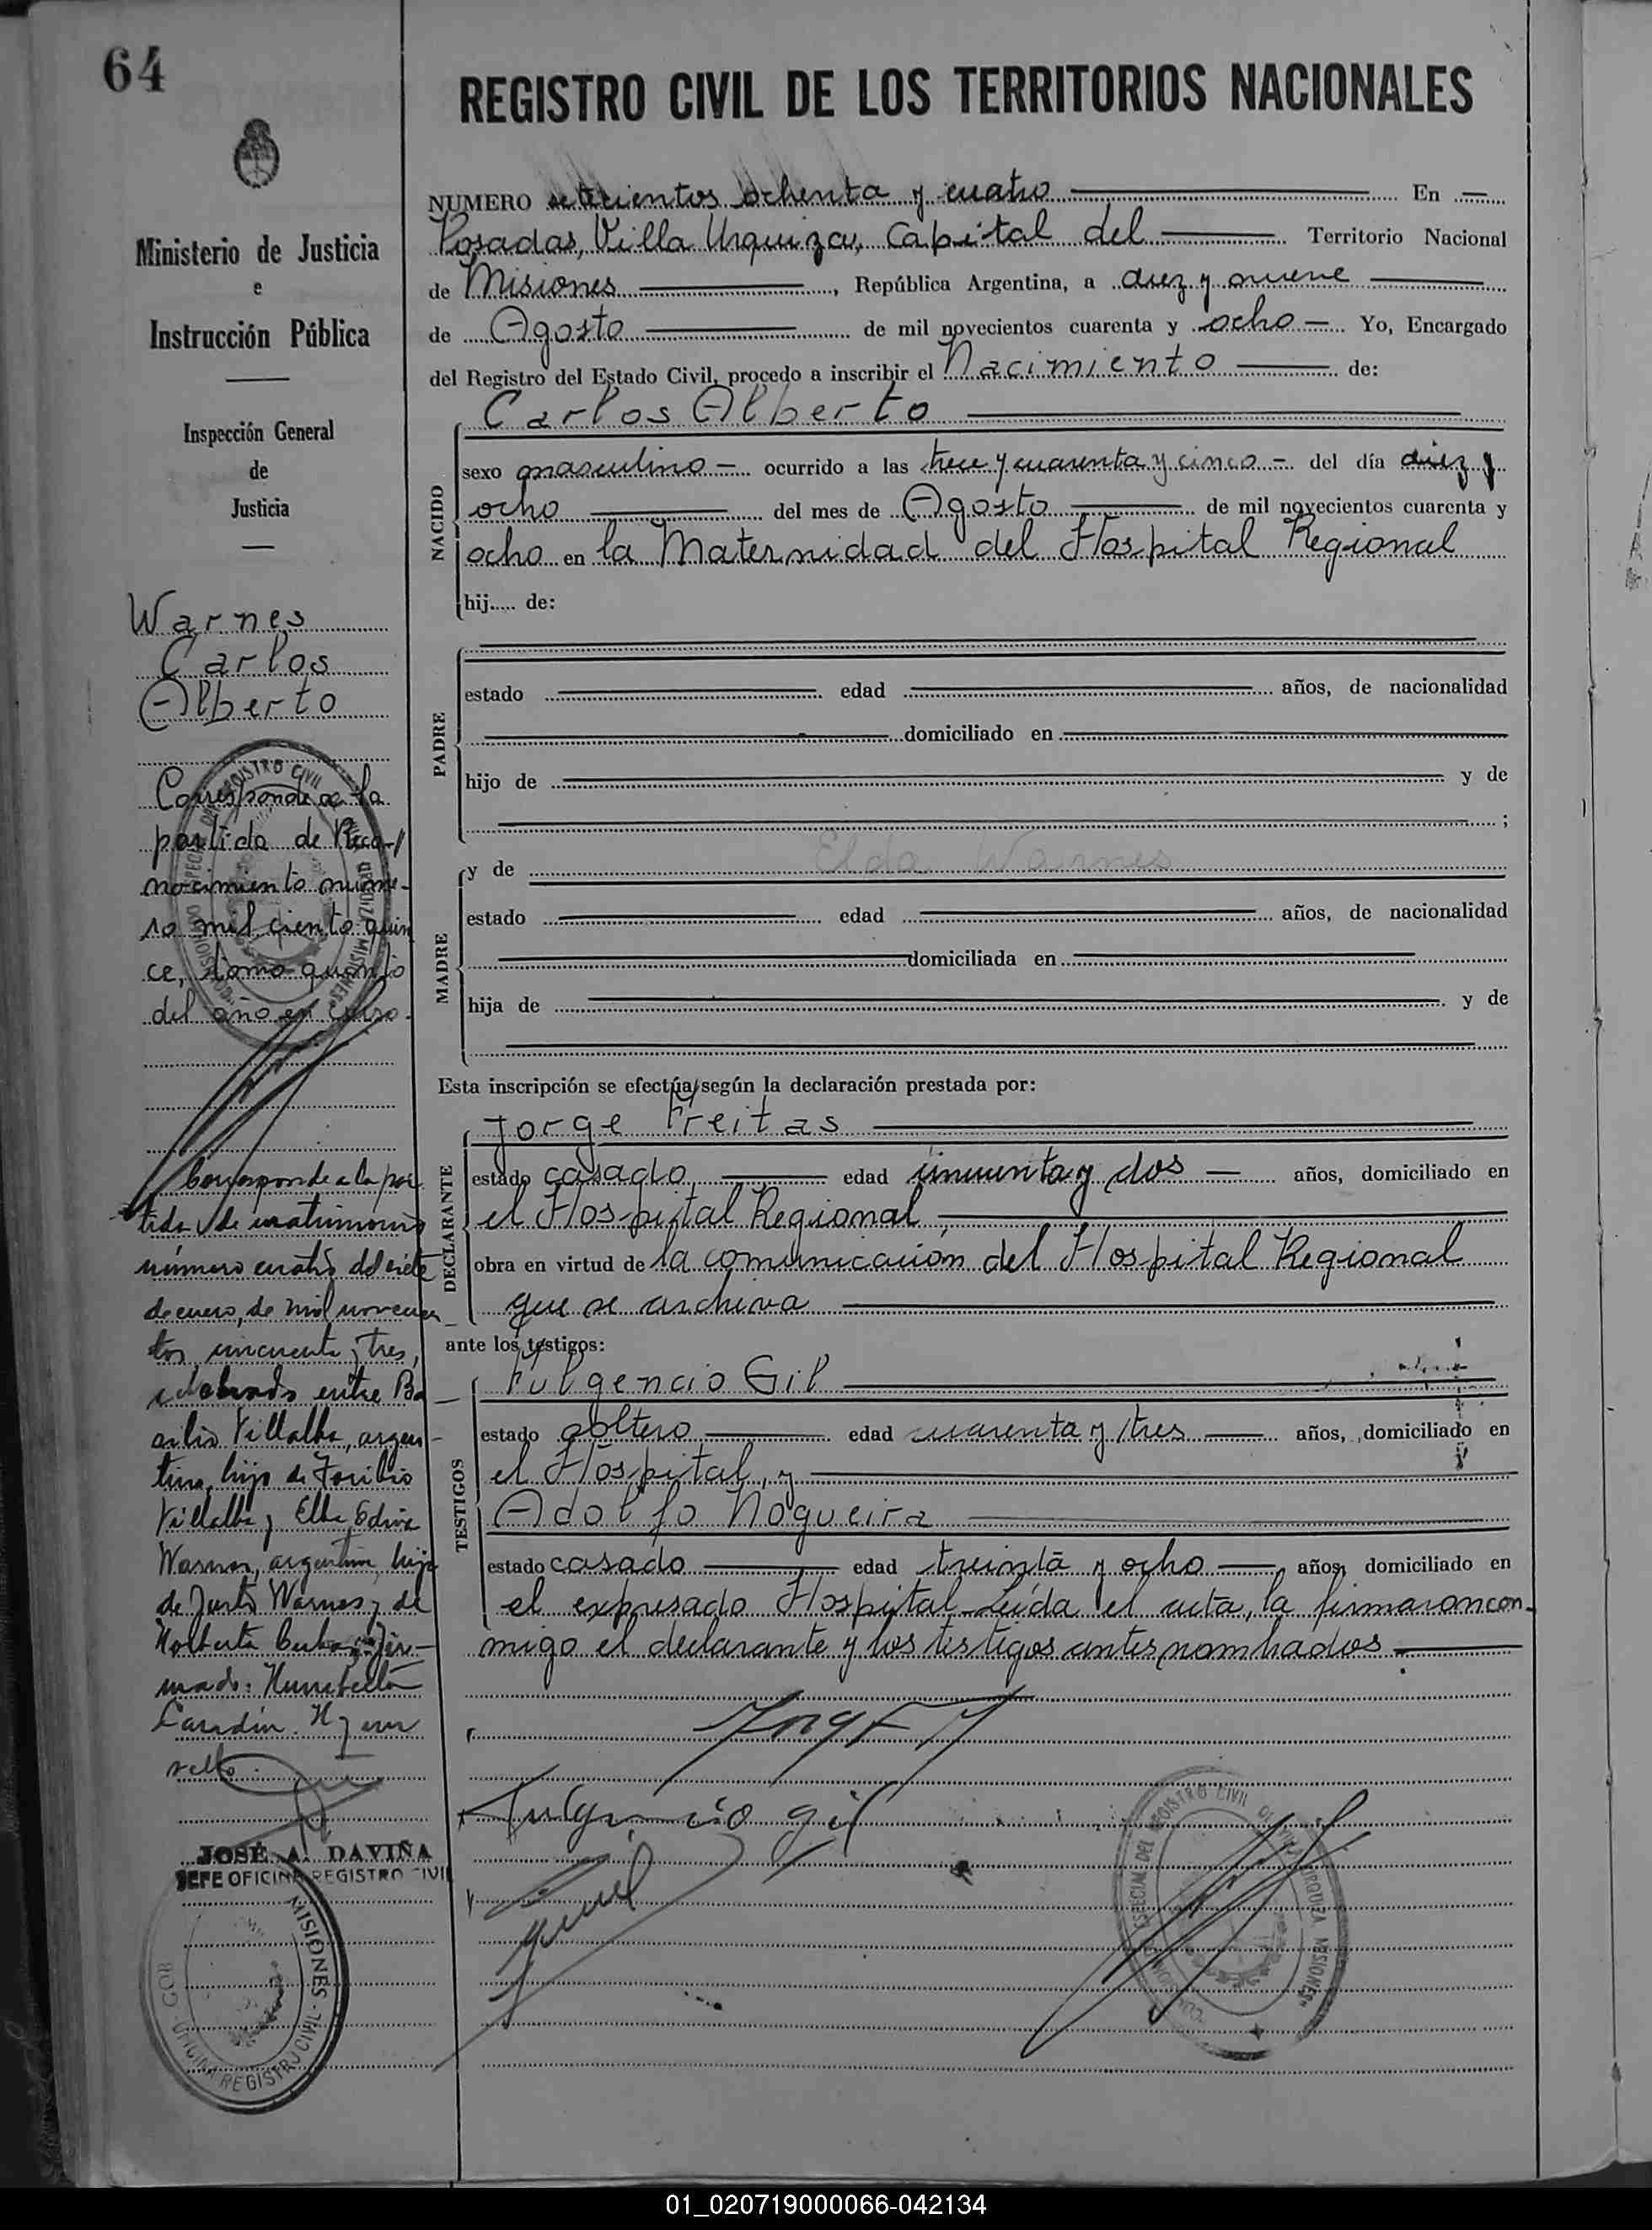 64
REGISTRO CIVIL DE LOS TERRITORIOS NACIONALES
Ministerio de Justicia
e
Instrucción Pública
Inspección General
de
Justicia
Warnes
Carlos
Alberto
Corresponde a la
partida de Reco-
nocimiento núme-
ro mil ciento quin
ce, tomo quinto
del año en curso.
Corresponde a la par
tida de matrimonio
número cuatro del siete
de enero, de mil novecien
tos cincuenta y tres,
celebrado entre Ba
silio Villalba, argen-
tino, hijo de Toribio
Villalba y Elba
Warnes, argentina, hija
de Justo Warnes y de
Norberta
mado: Humberto
H y un
sello.
JOSÉ A. DAVIÑA
JEFE OFICINA REGISTRO CIVIL
MISIONES - OFICINA REGISTRO CIVIL
NUMERO setecientos ochenta y cuatro En
Posadas, Villa Urquiza, Capital del Territorio Nacional
de Misiones, República Argentina, a diez y nueve
de Agosto de mil novecientos cuarenta y ocho Yo, Encargado
del Registro del Estado Civil, procedo a inscribir el Nacimiento de:
Carlos Alberto
NACIDO
sexo masculino ocurrido a las trece y cuarenta y cinco del día diez y
ocho del mes de Agosto de mil novecientos cuarenta y
ocho en la Maternidad del Hospital Regional
hij..... de:
PADRE
estado edad años, de nacionalidad
domiciliado en
hijo de y de
;
MADRE
y de Elda Warnes
estado edad años, de nacionalidad
domiciliada en
hija de y de
Esta inscripción se efectúa según la declaración prestada por:
DECLARANTE
Jorge Freitas
estado casado edad cincuenta y dos años, domiciliado en
el Hospital Regional,
obra en virtud de la comunicación del Hospital Regional
que se archiva
ante los testigos:
TESTIGOS
Fulgencio Gil
estado soltero edad cuarenta y tres años, domiciliado en
el Hospital, y
Adolfo Nogueira
estado casado edad treinta y ocho años, domiciliado en
el expresado Hospital. Leída el acta, la firmaron con-
migo el declarante y los testigos antes nombrados.
Fulgencio gil
COMISIONADO ESPECIAL DEL REGISTRO CIVIL DE VILLA URQUIZA MISIONES
01_020719000066-042134